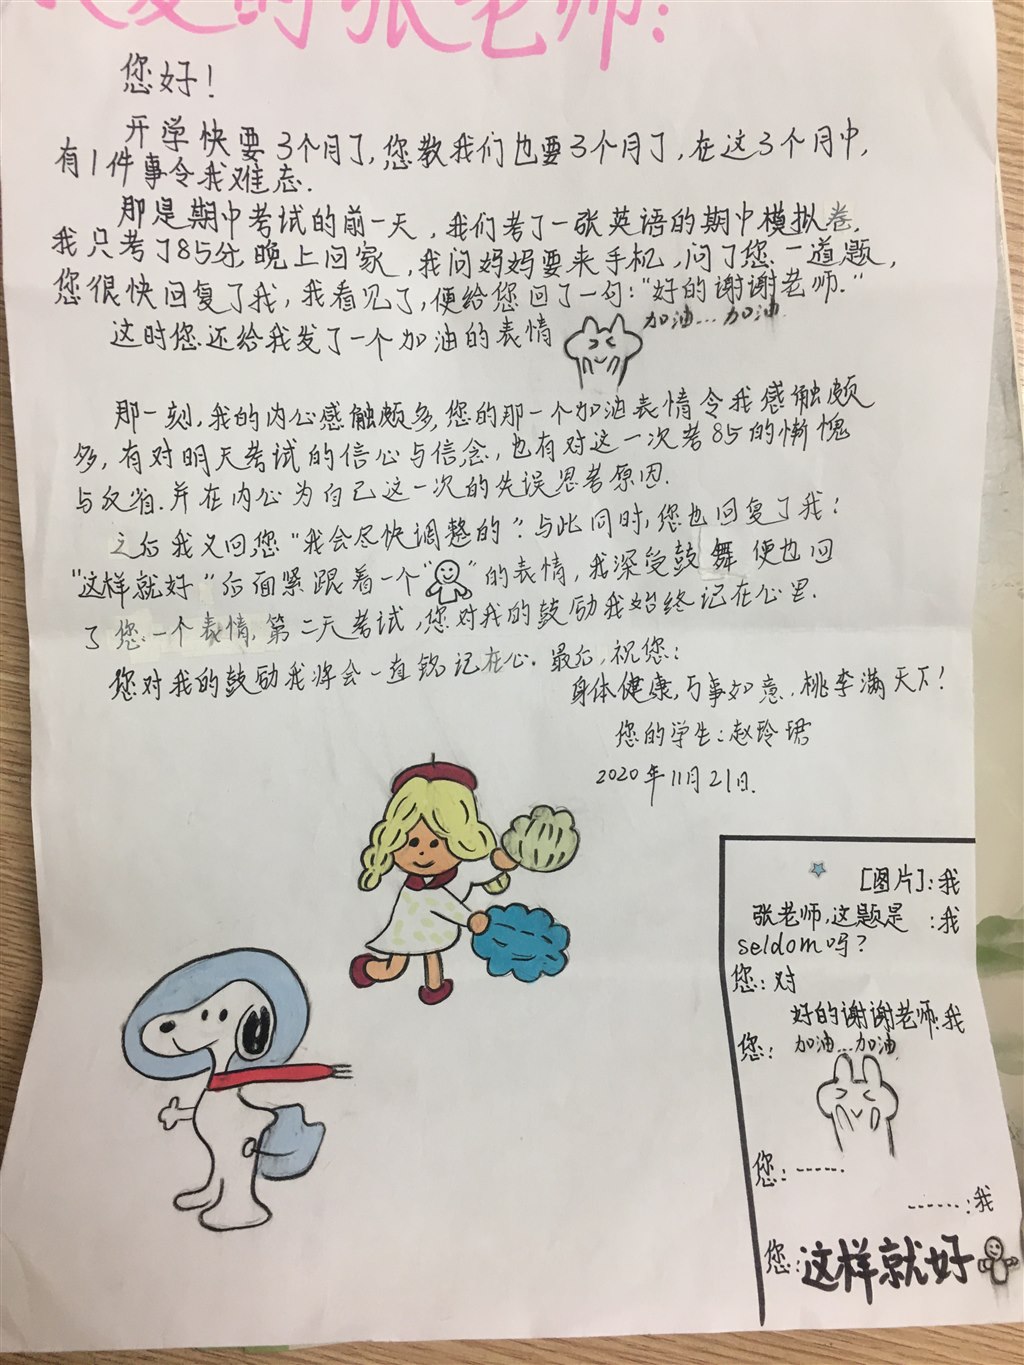 爱的张老师：
您好！
开学快要3个月了，您教我们也要3个月了，在这3个月中，
有1件事令我难忘.
那是期中考试的前一天，我们考了一张英语的期中模拟卷.
我只考了85分，晚上回家，我问妈妈要来手机，问了您一道题，
您很快回复了我，我看见了，便给您回了一句：“好的谢谢老师.”
这时您还给我发了一个加油的表情
加油...加油
那一刻，我的内心感触颇多，您的那一个加油表情令我感触颇
多，有对明天考试的信心与信念，也有对这一次考85的惭愧
与反省.并在内心为自己这一次的失误思考原因.
之后我又回您“我会尽快调整的”.与此同时，您也回复了我：
“这样就好”后面紧跟着一个“ ”的表情，我深受鼓舞便也回
了您一个表情，第二天考试，您对我的鼓励我始终记在心里.
您对我的鼓励我将会一直铭记在心.最后，祝您：
身体健康，万事如意，桃李满天下！
您的学生：赵玲珺
2020年11月21日.
[图片]：我
张老师，这题是 ：我
seldom吗？
您：对
好的谢谢老师：我
您：加油...加油
您：……
……：我
您：这样就好